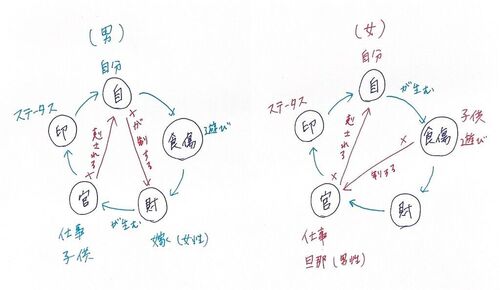 (男)
自分
自
ステータス
印
食傷
遊び
剋される
が剋する
官
財
が生む
仕事
子供
嫁(女性)
(女)
自分
自
が生む
ステータス
印
食傷
子供
遊び
剋される
剋する
官
財
仕事
旦那(男性)